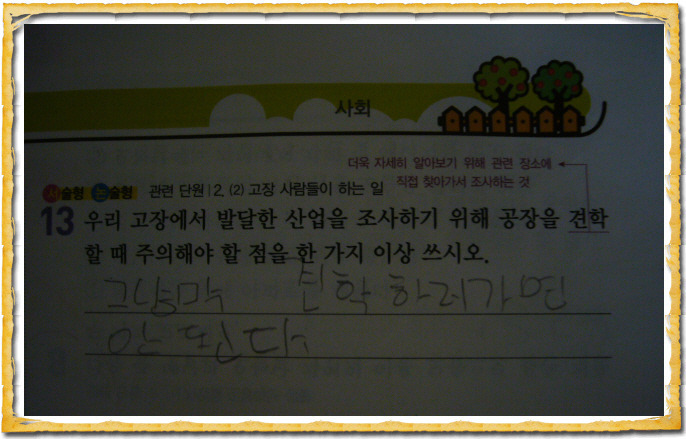 사회
더욱 자세히 알아보기 위해 관련 장소에
직접 찾아가서 조사하는 것
서술형 논술형 관련 단원 | 2. (2) 고장 사람들이 하는 일
13 우리 고장에서 발달한 산업을 조사하기 위해 공장을 견학
할 때 주의해야 할 점을 한 가지 이상 쓰시오.
그냥막 견학하러가면
안된다